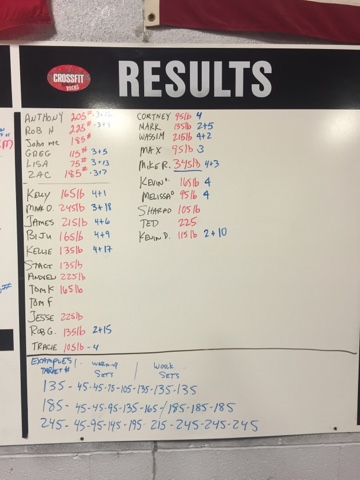 CROSSFIT
RESULTS
ANTHONY 205#
ROB H 225#
JOHN MC 185#
GREG 115# 3+5
LISA 75# 3+13
ZAC 185# 3+7
KELLY 165lb 4+1
MIKE O. 245lb 3+18
JAMES 215lb 4+6
BIJU 165lb 4+9
KELLIE 135lb 4+17
STACY 135lb
ANDREW 225lb
TOM K 165lb
TOM F
JESSE 225lb
ROB G. 135lb 2+15
TRACIE 105lb - 4
CORTNEY 95lb 4
MARK 135lb 2+5
WASSIM 215lb 4+2
MAX 95lb 3
MIKE R. 345lb 4+3
KEVIN 165lb 4
MELISSA 95lb 4
SHARAD 105lb
TED 225
KEVIN D. 115lb 2+10
EXAMPLES / WARMUP | WORK
TARGET # SETS SETS
135 - 45-45-75-105-135-135-135
185 - 45-45-95-135-165-/185-185-185
245 - 45-95-145-195-215-245-245-245